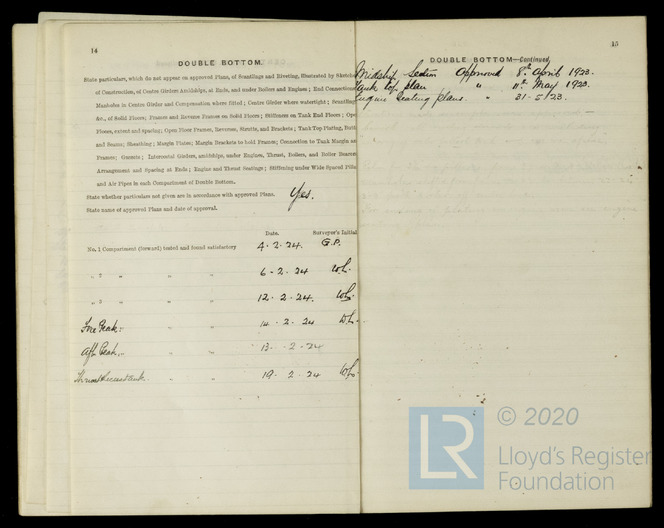 14
DOUBLE BOTTOM.
State particulars, which do not appear on approved Plans, of Scantlings and Riveting, illustrated by Sketches
of Construction, of Centre Girder Amidships, at Ends, and under Boilers and Engines; End Connections
Manholes in Centre Girder and Compensation where fitted; Centre Girder where watertight; Scantlings
&c., of Solid Floors; Frames and Reverse Frames on Solid Floors; Stiffeners on Tank End Floors; Open
Floors, extent and spacing, Open Floor Frames, Reverses, Struts, and Brackets; Tank Top Plating, Butts
and Seams; Sheathing; Margin Plates; Margin Brackets to hold Frames; Connection to Tank Margin at
Frames; Gussets; Intercostal Girders, amidships, under Engines, Thrust, Boilers, and Boiler Bearers
Arrangement and Spacing at Ends; Engine and Thrust Seatings; Stiffening under Wide Spaced Pillars
and Air Pipes in each Compartment of Double Bottom.
State whether particulars not given are in accordance with approved Plans. Yes.
State name of approved Plans and date of approval.
Date. Surveyor's Initials
No. 1 Compartment (forward) tested and found satisfactory 4.2.24. G.P.
" 2 " " " 6.2.24
" 3 " " " 12.2.24.
Fore Peak " " 14.2.24
Aft Peak " " 13.2.24
Thrust Recess tank " " 19.2.24
15
DOUBLE BOTTOM—Continued.
Midship Section Approved 8th April 1923.
Tank top plan " 11th May 1923.
Engine Seating plans. " 31-5-23.
LR
© 2020
Lloyd's Register
Foundation